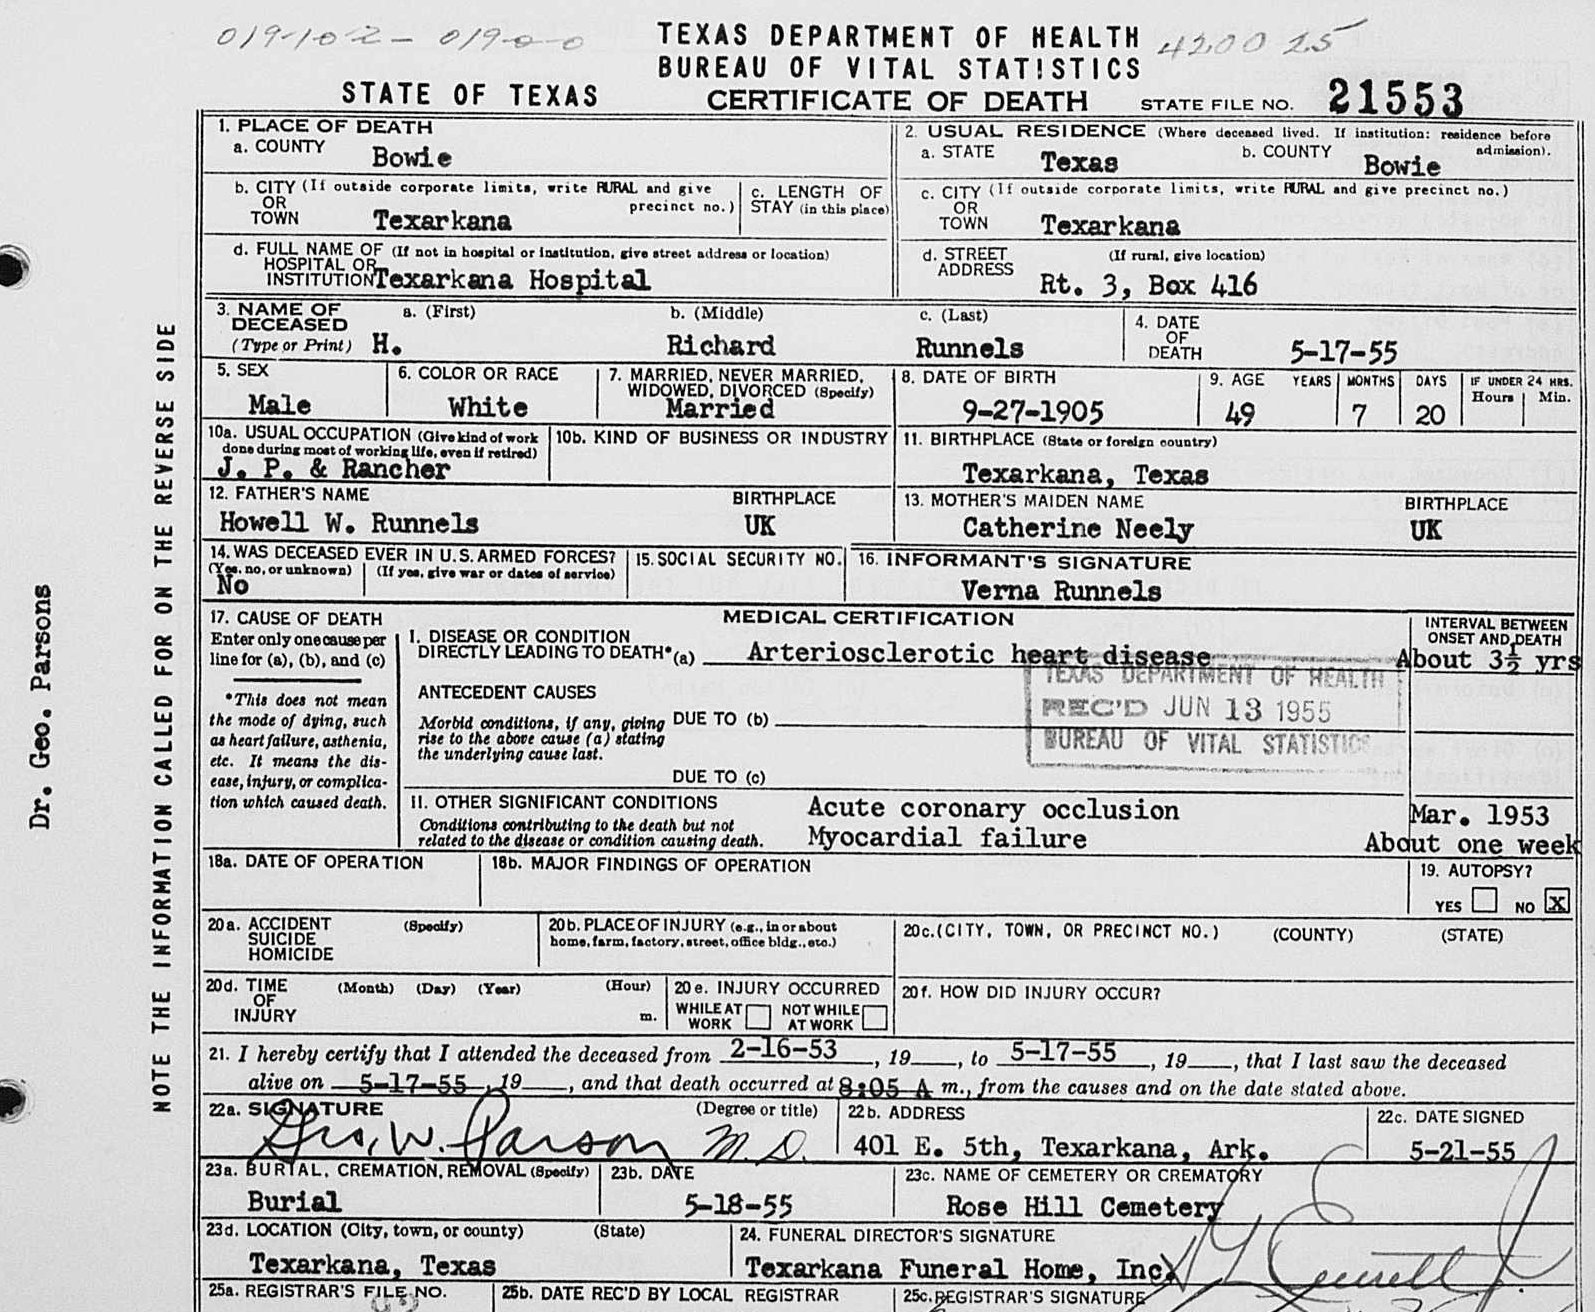 019-102- 019-0-0
TEXAS DEPARTMENT OF HEALTH
4200 25
BUREAU OF VITAL STATISTICS
STATE OF TEXAS
CERTIFICATE OF DEATH
STATE FILE NO. 21553
1. PLACE OF DEATH
a. COUNTY Bowie
2. USUAL RESIDENCE (Where deceased lived. If institution: residence before admission).
a. STATE Texas b. COUNTY Bowie
b. CITY (If outside corporate limits, write RURAL and give precinct no.)
OR
TOWN Texarkana
c. LENGTH OF
STAY (in this place)
c. CITY (If outside corporate limits, write RURAL and give precinct no.)
OR
TOWN Texarkana
d. FULL NAME OF (If not in hospital or institution, give street address or location)
HOSPITAL OR
INSTITUTION Texarkana Hospital
d. STREET (If rural, give location)
ADDRESS
Rt. 3, Box 416
3. NAME OF
DECEASED
(Type or Print)
a. (First) b. (Middle) c. (Last)
H. Richard Runnels
4. DATE
OF
DEATH 5-17-55
5. SEX
Male
6. COLOR OR RACE
White
7. MARRIED, NEVER MARRIED,
WIDOWED, DIVORCED (Specify)
Married
8. DATE OF BIRTH
9-27-1905
9. AGE YEARS MONTHS DAYS IF UNDER 24 HRS.
Hours Min.
49 7 20
10a. USUAL OCCUPATION (Give kind of work
done during most of working life, even if retired)
J. P. & Rancher
10b. KIND OF BUSINESS OR INDUSTRY
11. BIRTHPLACE (State or foreign country)
Texarkana, Texas
12. FATHER'S NAME BIRTHPLACE
Howell W. Runnels UK
13. MOTHER'S MAIDEN NAME BIRTHPLACE
Catherine Neely UK
14. WAS DECEASED EVER IN U.S. ARMED FORCES?
(Yes, no, or unknown) (If yes, give war or dates of service)
No
15. SOCIAL SECURITY NO.
16. INFORMANT'S SIGNATURE
Verna Runnels
17. CAUSE OF DEATH
Enter only one cause per
line for (a), (b), and (c)
*This does not mean
the mode of dying, such
as heart failure, asthenia,
etc. It means the dis-
ease, injury, or complica-
tion which caused death.
MEDICAL CERTIFICATION
INTERVAL BETWEEN
ONSET AND DEATH
I. DISEASE OR CONDITION
DIRECTLY LEADING TO DEATH* (a) Arteriosclerotic heart disease About 3½ yrs
ANTECEDENT CAUSES
Morbid conditions, if any, giving
rise to the above cause (a) stating
the underlying cause last.
DUE TO (b)
DUE TO (c)
TEXAS DEPARTMENT OF HEALTH
REC'D JUN 13 1955
BUREAU OF VITAL STATISTICS
II. OTHER SIGNIFICANT CONDITIONS
Conditions contributing to the death but not
related to the disease or condition causing death.
Acute coronary occlusion Mar. 1953
Myocardial failure About one week
18a. DATE OF OPERATION
18b. MAJOR FINDINGS OF OPERATION
19. AUTOPSY?
YES NO X
20a. ACCIDENT (Specify)
SUICIDE
HOMICIDE
20b. PLACE OF INJURY (e.g., in or about
home, farm, factory, street, office bldg., etc.)
20c. (CITY, TOWN, OR PRECINCT NO.) (COUNTY) (STATE)
20d. TIME (Month) (Day) (Year) (Hour)
OF
INJURY m.
20e. INJURY OCCURRED
WHILE AT
WORK
NOT WHILE
AT WORK
20f. HOW DID INJURY OCCUR?
21. I hereby certify that I attended the deceased from 2-16-53, 19, to 5-17-55, 19, that I last saw the deceased
alive on 5-17-55, 19, and that death occurred at 8:05 A m., from the causes and on the date stated above.
22a. SIGNATURE (Degree or title)
Geo. W. Parson M.D.
22b. ADDRESS
401 E. 5th, Texarkana, Ark.
22c. DATE SIGNED
5-21-55
23a. BURIAL, CREMATION, REMOVAL (Specify)
Burial
23b. DATE
5-18-55
23c. NAME OF CEMETERY OR CREMATORY
Rose Hill Cemetery
23d. LOCATION (City, town, or county) (State)
Texarkana, Texas
24. FUNERAL DIRECTOR'S SIGNATURE
Texarkana Funeral Home, Inc.
25a. REGISTRAR'S FILE NO.
25b. DATE REC'D BY LOCAL REGISTRAR
25c. REGISTRAR'S SIGNATURE
NOTE THE INFORMATION CALLED FOR ON THE REVERSE SIDE
Dr. Geo. Parsons